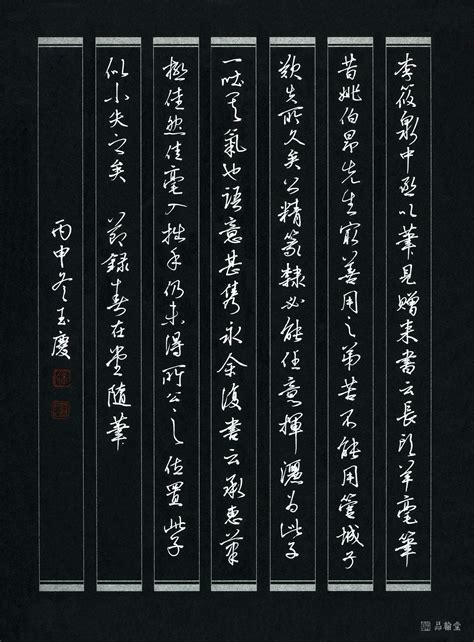 李筱泉中丞以筆見贈来書云長頭羊毫筆
昔姚伯昂先生最善用之弟苦不能用管城子
歎失所久矣公精篆隸必能任意揮灑為此子
一吐其氣也語意甚雋永余復書云承惠筆
極佳然佳毫入拙手仍未得所公之位置此子
似小失之矣 節錄春在堂随筆
丙申冬玉慶
品翰堂